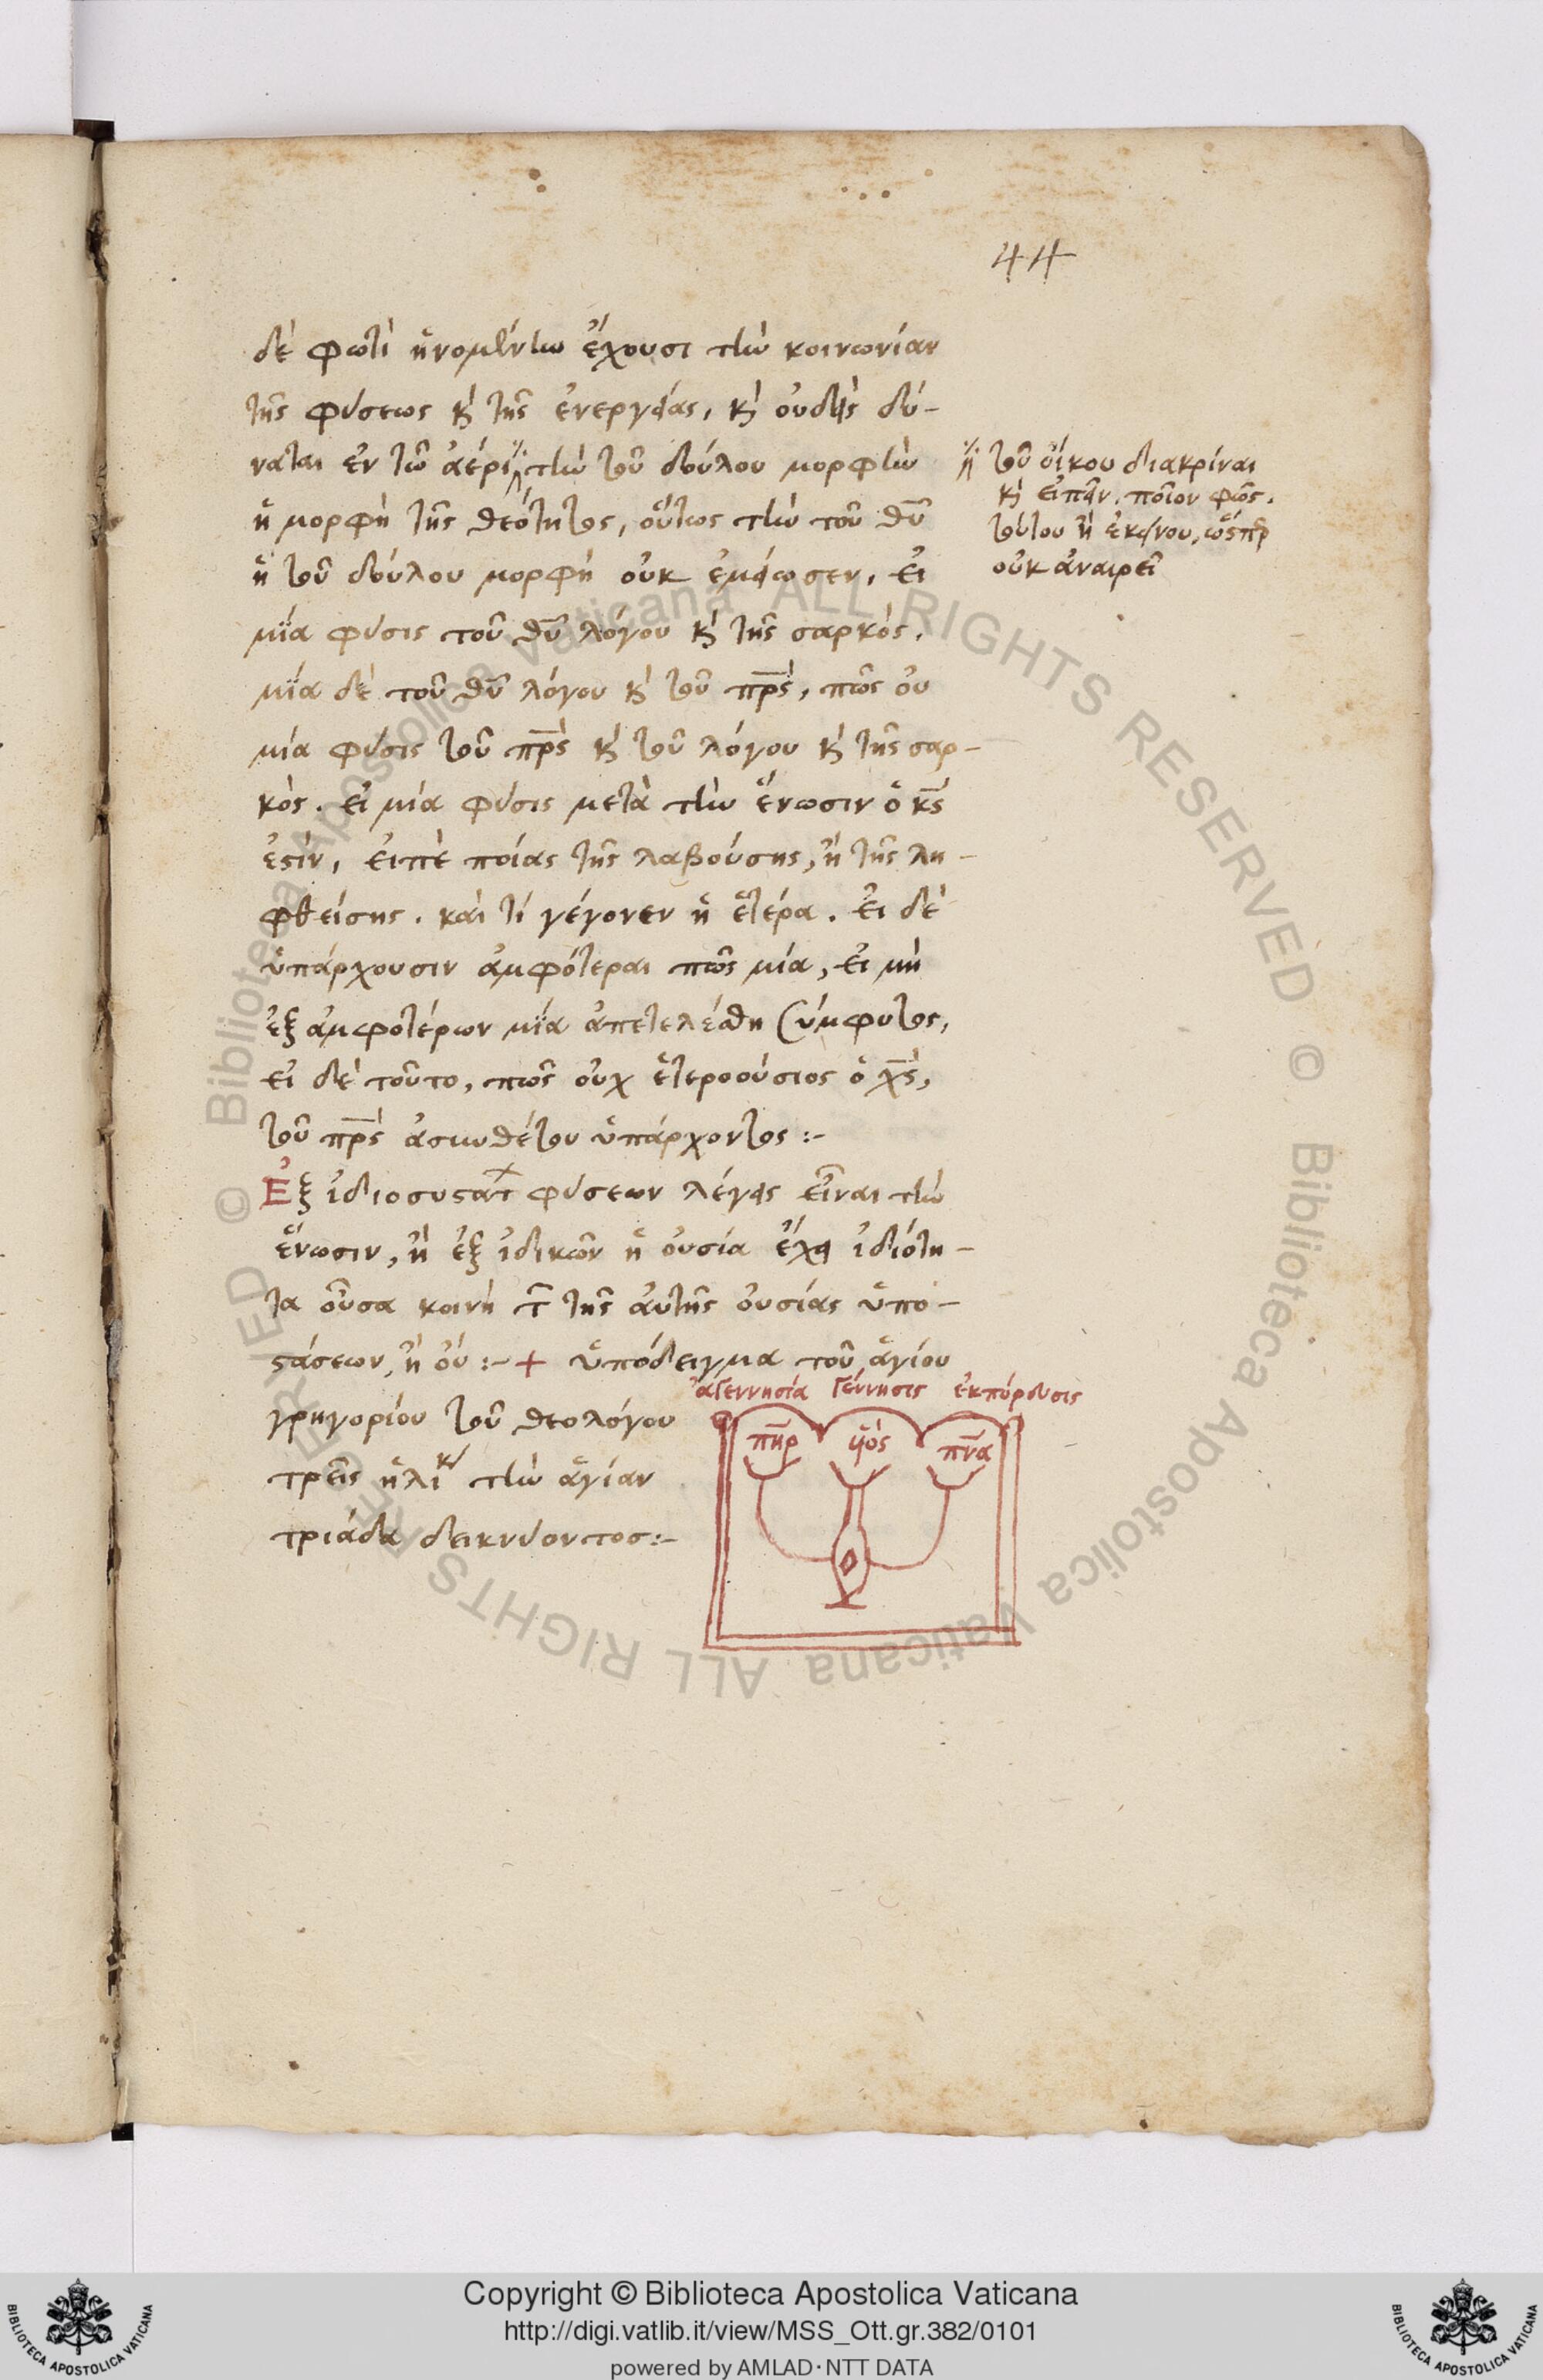 44
δὲ φωτὶ ἡνομένην ἔχουσι τὴν κοινωνίαν
τῆς φύσεως κ̀ τῆς ἐνεργείας, κ̀ οὐδεὶς δύ-
ναται ἐν τῶ ἀέρι τὴν τοῦ δούλου μορφὴν
ἡ μορφὴ τῆς θεότητος, οὕτως τὴν τοῦ θῦ
ἡ τοῦ δούλου μορφὴ οὐκ ἐμείωσεν, εἰ
μϊα φύσις τοῦ θῦ λόγου κ̀ τῆς σαρκὸς.
μϊα δὲ τοῦ θῦ λόγου κ̀ τοῦ πρς, πῶς οὐ
μία φύσις τοῦ πρς κ̀ τοῦ λόγου κ̀ τῆς σαρ-
κὸς. εἰ μία φύσις μετὰ τὴν ἕνωσιν ὁ κς
ἐϛίν, εἰπὲ ποίας τῆς λαβούσης, ἢ τῆς λη-
φθείσης. καὶ τί γέγονεν ἡ ἑτέρα. εἰ δὲ
ὑπάρχουσιν ἀμφότεραι πῶς μία, εἰ μὴ
ἐξ ἀμφοτέρων μϊα ἀπετελέσθη σύμφυτος,
εἰ δὲ τοῦτο, πῶς οὐχ ἑτεροούσιος ὁ χς,
τοῦ πρς ἀσυνθέτου ὑπάρχοντος :-
Ἐξ ἰδιοσυϛατ φύσεων λέγεις εἶναι τὴν
ἕνωσιν, ἢ ἐξ ἰδικῶν ἡ οὐσία ἔχει ἰδιότη-
τα οὖσα κοινὴ τ τῆς αὐτῆς οὐσίας ὑπο-
ϛάσεων, ἢ οὐ :- + ὑπόδειγμα τοῦ ἁγίου
γρηγορίου τοῦ θεολόγου
τρεῖς ἡλι τὴν ἁγίαν
τριάδα δεικνύοντος:-
τοῦ οἴκου διακρίναι
κ̀ εἰπεῖν. ποῖον φῶς.
τούτου ἢ ἐκείνου, ὥσπερ
οὐκ ἀναιρεῖ
ἀγεννησία γέννησις ἐκπόρευσις
πηρ υἱὸς πνα
Copyright © Biblioteca Apostolica Vaticana
http://digi.vatlib.it/view/MSS_Ott.gr.382/0101
powered by AMLAD·NTT DATA
BIBLIOTECA APOSTOLICA VATICANA
BIBLIOTECA APOSTOLICA VATICANA
© Biblioteca Apostolica Vaticana ALL RIGHTS RESERVED
© Biblioteca Apostolica Vaticana ALL RIGHTS RESERVED